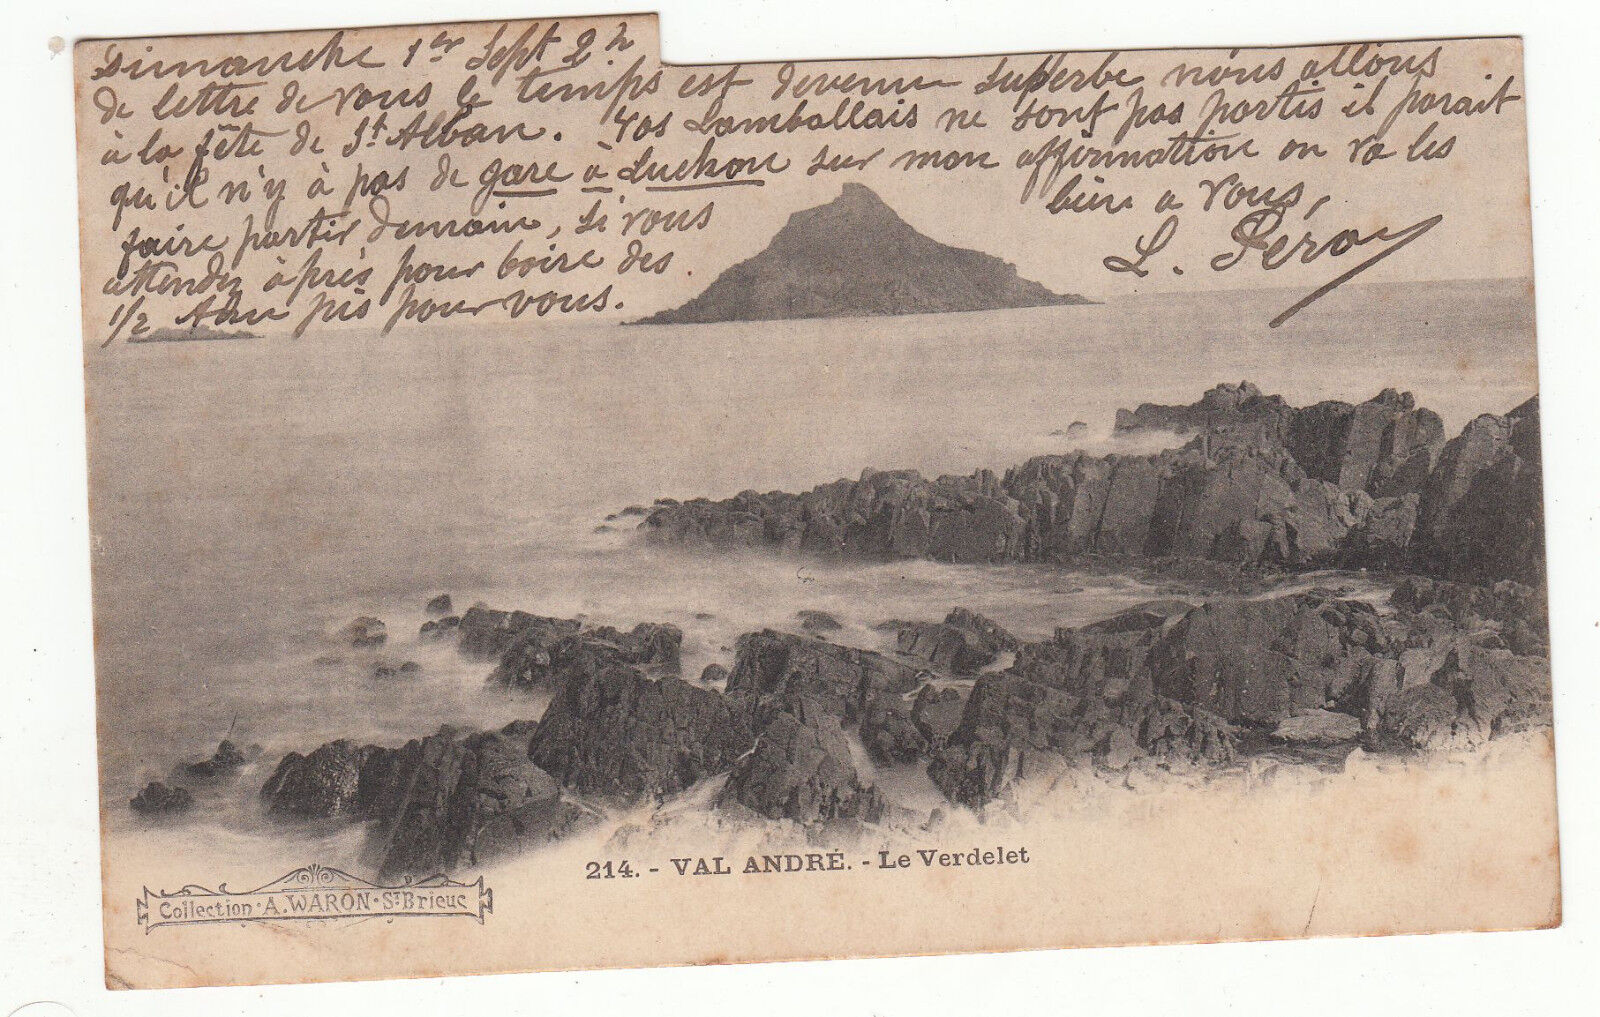 Dimanche 1er Sept 2h
de lettre de vous le temps est devenu superbe nous allons
à la fête de St Alban. Vos Lamballais ne sont pas partis il parait
qu'il n'y à pas de gare à Luchon sur mon affirmation on va les
faire partir demain, si vous
bien a vous,
attendez àprés pour boire des
L. Pero
1/2 tan pis pour vous.
214. - VAL ANDRÉ. - Le Verdelet
Collection · A. WARON · ST Brieuc